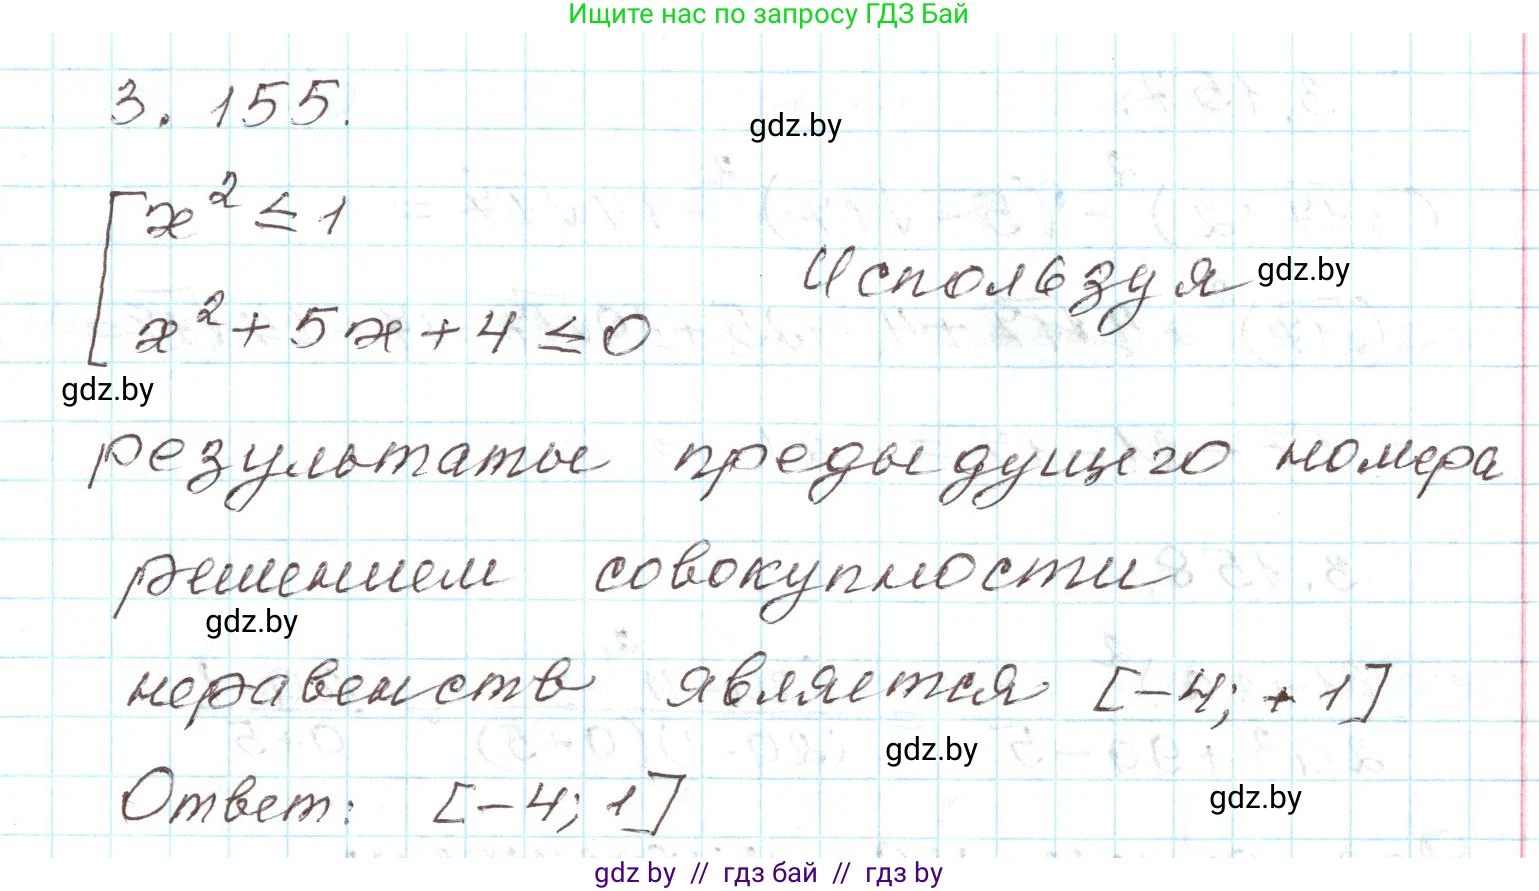 Ищите нас по запросу ГДЗ Бай
3.155.
gdz.by
x² ≤ 1
Используя gdz.by
x² + 5x + 4 ≤ 0
gdz.by
результаты предыдущего номера
решением совокупности
gdz.by
неравенств является [-4; +1]
gdz.by
Ответ: [-4; 1]
gdz.by
gdz by // гдз бай // гдз by